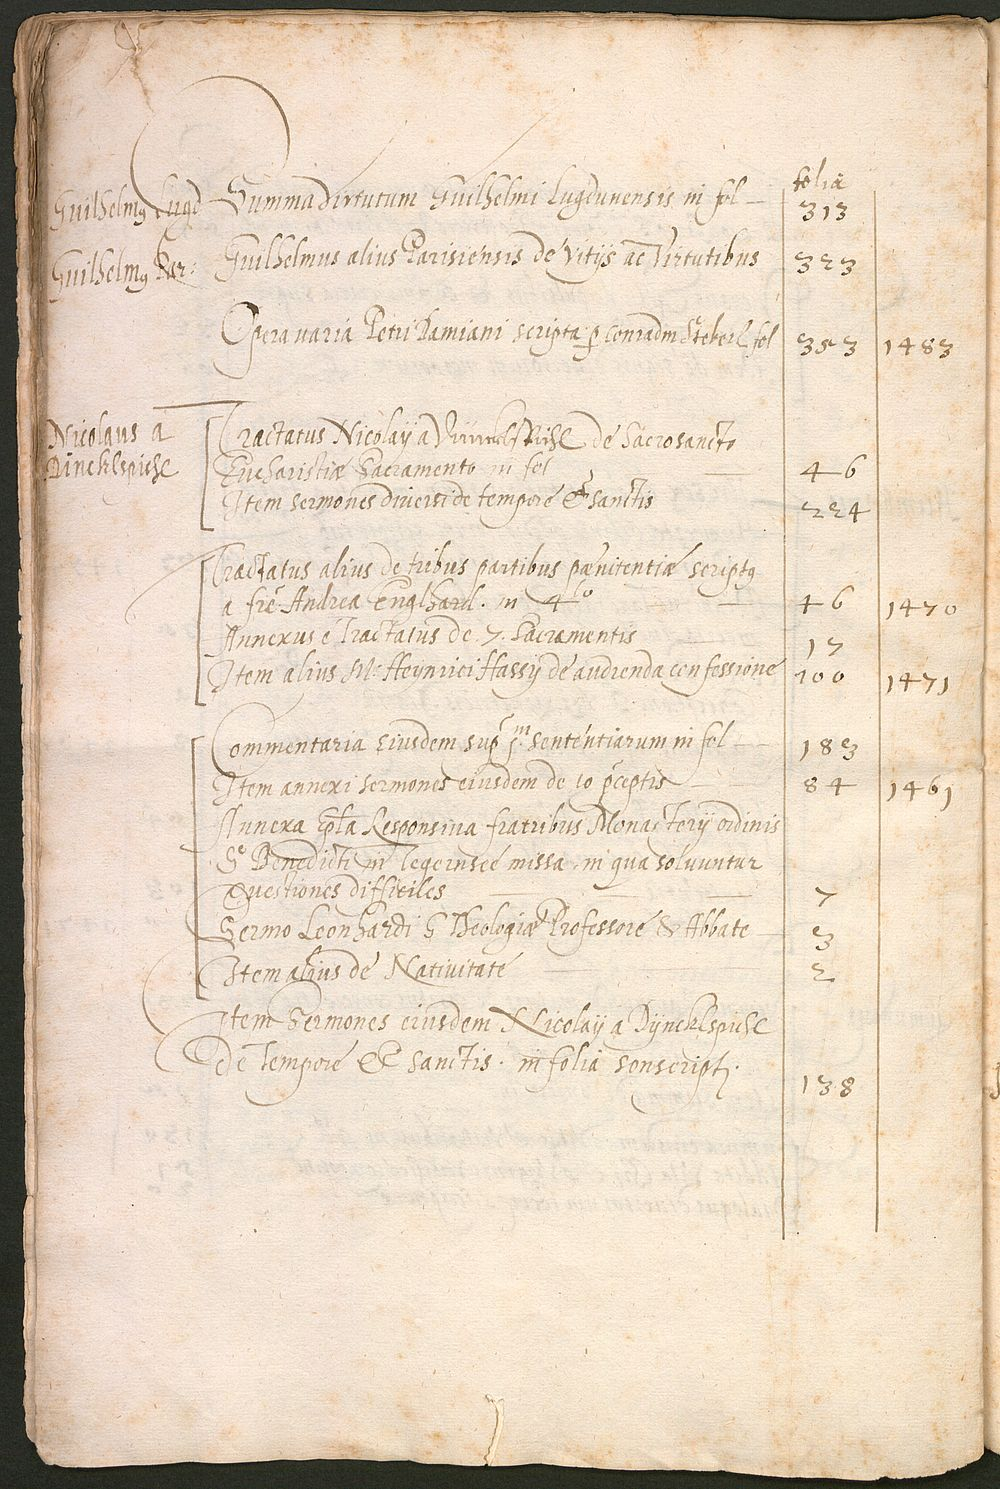 folia
Guilhelmꝰ Lugd Summa Virtutum Guilhelmi Lugdunensis in fol 313
Guilhelmꝰ Par: Guilhelmus alius Parisiensis de Vitijs ac Virtutibus 323
Opera varia Petri Damiani scripta ꝑ Conradm fol 353 1483
Nicolaus a Tractatus Nicolaij a Dünckhlspichl de Sacrosancto
Dincklspichl Eucharistiæ Sacramento in fol 46
Item sermones diversi de tempore et Sanctis 224
Tractatus alius de tribus partibus pænitentiæ scriptꝰ
a fre Andrea Englhard. in 4to 46 1470
Annexus e Tractatus de 7. Sacramentis 17
Item alius M. Heynrici Hassij de audienda confessione 100 1471
Commentaria eiusdem sup pm. sententiarum in fol 183
Item annexi sermones eiusdem de 10 pceptis 84 1461
Annexa Epla Responsiua fratribus Monasterij ordinis
S. Benedicti in Tegernseé missa, in qua soluuntur
Questiones difficiles 7
Sermo Leonhardi S Theologiæ Professore & Abbate 3
Item alius de Natiuitate 2
Item Sermones eiusdem Nicolaij a Dyncklspichl
de Tempore et Sanctis. in folia 138